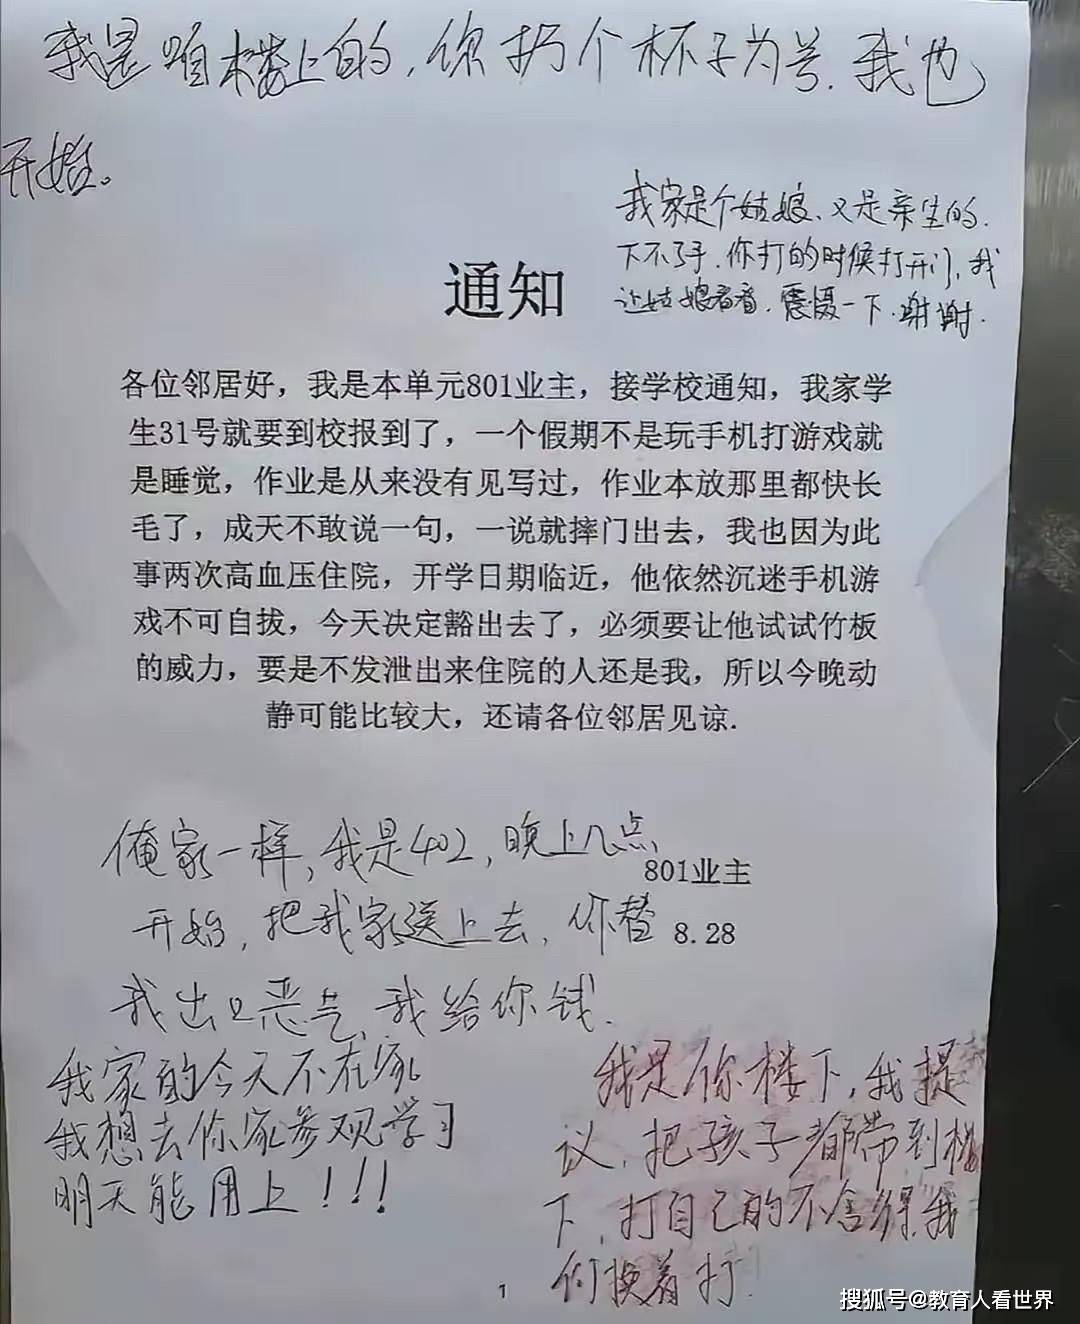 我是咱楼上的，你扔个杯子为号．我也
开始。
我家是个姑娘、又是亲生的．
下不了手．你打的时候打开门，我
让姑娘看看．震慑一下．谢谢．
通知
各位邻居好，我是本单元801业主，接学校通知，我家学
生31号就要到校报到了，一个假期不是玩手机打游戏就
是睡觉，作业是从来没有见写过，作业本放那里都快长
毛了，成天不敢说一句，一说就摔门出去，我也因为此
事两次高血压住院，开学日期临近，他依然沉迷手机游
戏不可自拔，今天决定豁出去了，必须要让他试试竹板
的威力，要是不发泄出来住院的人还是我，所以今晚动
静可能比较大，还请各位邻居见谅.
801业主
8.28
俺家一样，我是402，晚上几点
开始，把我家送上去，你替
我出口恶气，我给你钱．
我家的今天不在家
我想去你家参观学习
明天能用上！！！
我是你楼下，我提
议，把孩子都带到楼
下，打自己的不舍得，我
们换着打．
1
搜狐号@教育人看世界